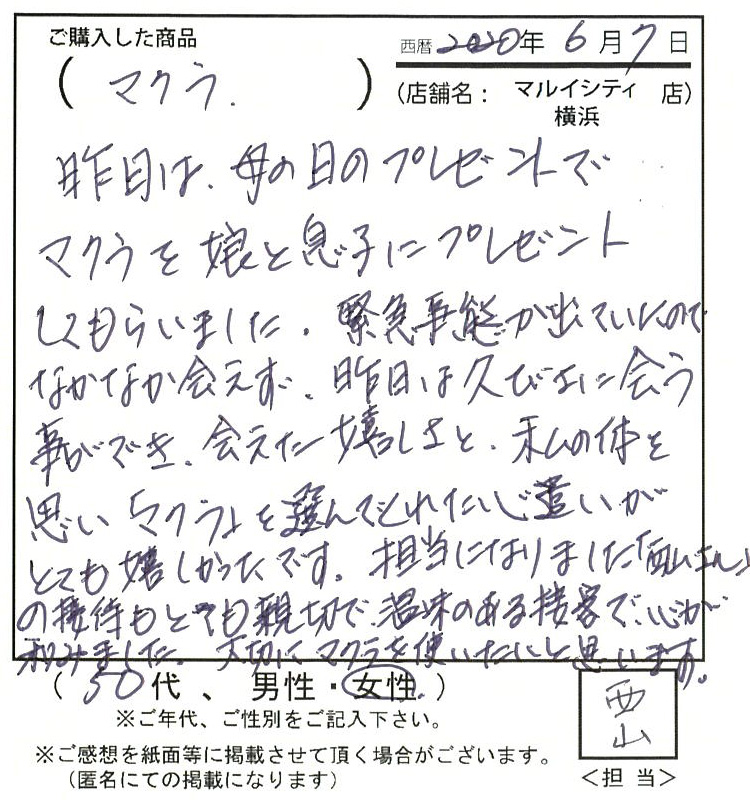 ご購入した商品
(マクラ.)
西暦 2020年 6月 7日
(店舗名： マルイシティ横浜 店)
昨日は、母の日のプレゼントで
マクラを娘と息子にプレゼント
してもらいました。緊急事態が出ていたので
なかなか会えず、昨日は久びさに会う
事ができ、会えた嬉しさと、私の体を
思い「マクラ」を選んでくれた心遣いが
とても嬉しかったです。担当になりました「西山さん」
の接待もとても親切で、温味のある接客で、心が
和みました。大切にマクラを使いたいと思います。
(50代、男性・女性)
※ご年代、ご性別をご記入下さい。
※ご感想を紙面等に掲載させて頂く場合がございます。
(匿名にての掲載になります)
西山
＜担当＞